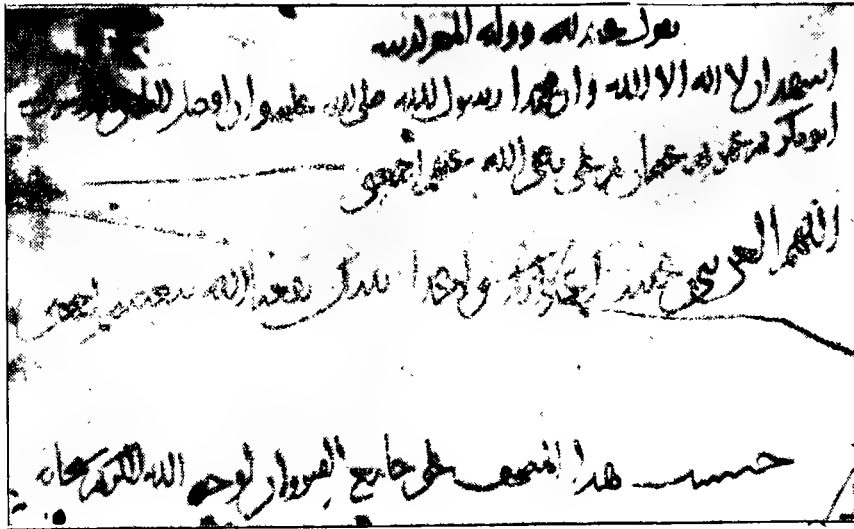 يقول عبد الله ووليه المعز لدينه
اشهد ان لا اله الا الله وان محمدا رسول الله صلى الله عليه وان افضل الناس بعد رسول الله
ابو بكر ثم عمر ثم عثمان ثم علي رضي الله عنهم اجمعين
اللهم العن بني عبيد اعداءك واعداء نبيك نفعنا الله ببغضهم اجمعين
حبست هذا المصحف على جامع القيروان لوجه الله الكريم سبحانه